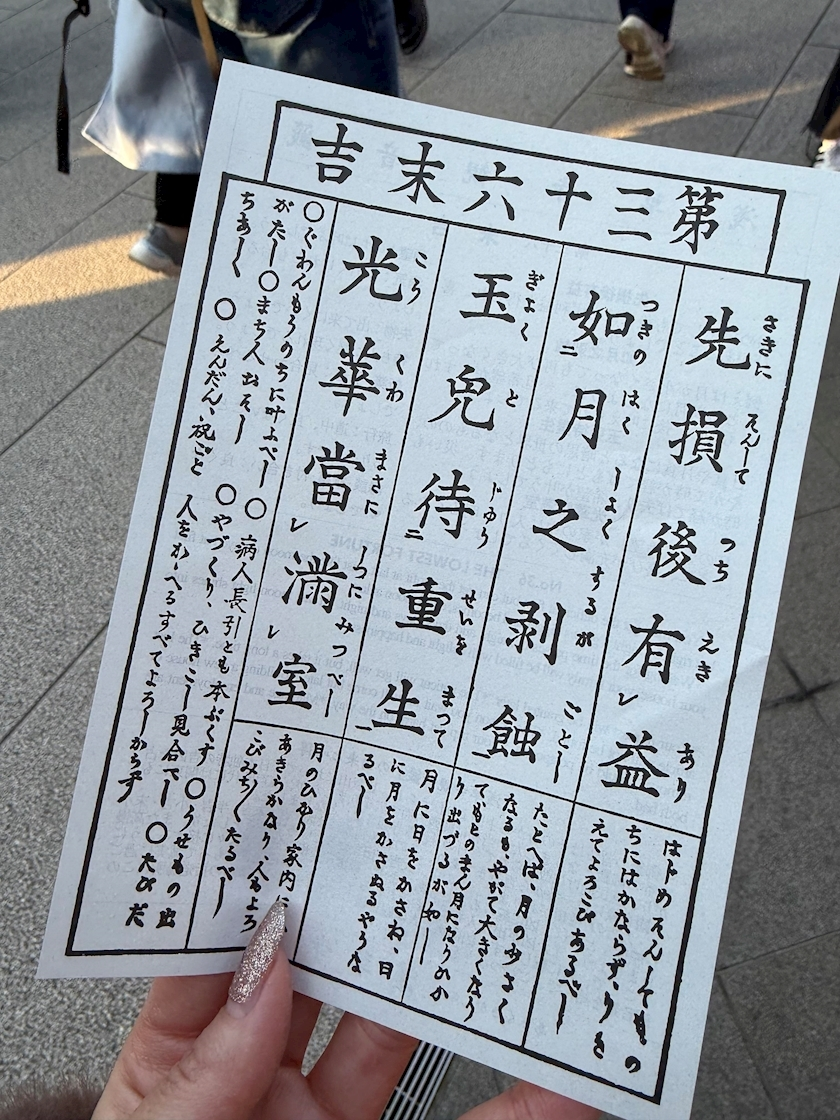 第三十六末吉
先損後有レ益
さきに そんして のち えき あり
はじめそんしてもの
ちにはかならず、りき
えてよろこびあるべし
如二月之剥蝕一
つきの はくしよく するが ごとし
たとへば、月の少さく
なるも、やがて大きくなり
てもとのまん月になりひか
り出づるが如し
玉兎待二重生一
ぎよく と じゆう せいを まつて
月に日をかさね、日
に月をかさぬるやうな
るべし
光華當レ滿レ室
こう くわ まさに しつに みつべし
月のひかり家内に
あきらかなり、人もよろ
こびみち〱たるべし
○ぐわんもうのちに叶ふべし○病人長引とも本ぷくす○うせもの出
がたし○まち人おそし○やづくり、ひきこし見合てし○たびだ
ちあしく○えんだん、祝ごと人をかゝへるすべてよろしからず